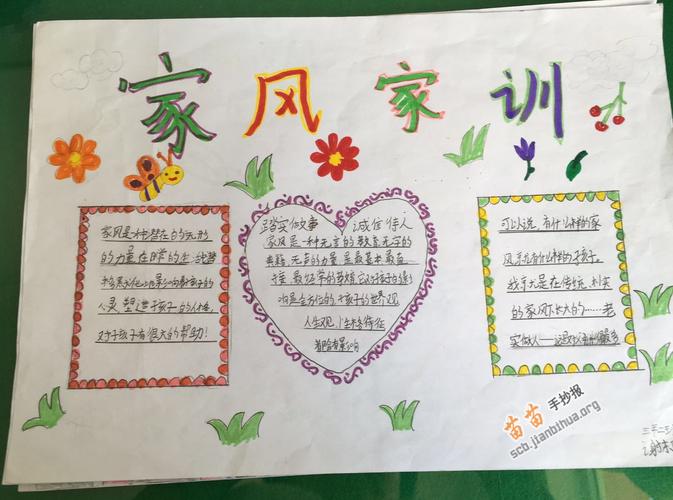 家风家训
家风是一种潜在的无形
的力量,在日常的生活潜
影响着孩子的
心灵,塑造孩子的人格,
对于孩子有很大的帮助!
踏实做事 诚信待人
家风是一种无言的教育无字的
典籍、无声的力量,是最基本最直
接、最经常的教育,它对孩子的影
响是全方位的,孩子的世界观、
人生观、性格特征
可以说,有什么样的家
风,就有什么样的孩子。
我就是在传统、朴实
的家风中长大的……老
实做人——
苗苗手抄报
scb.jianbihua.org